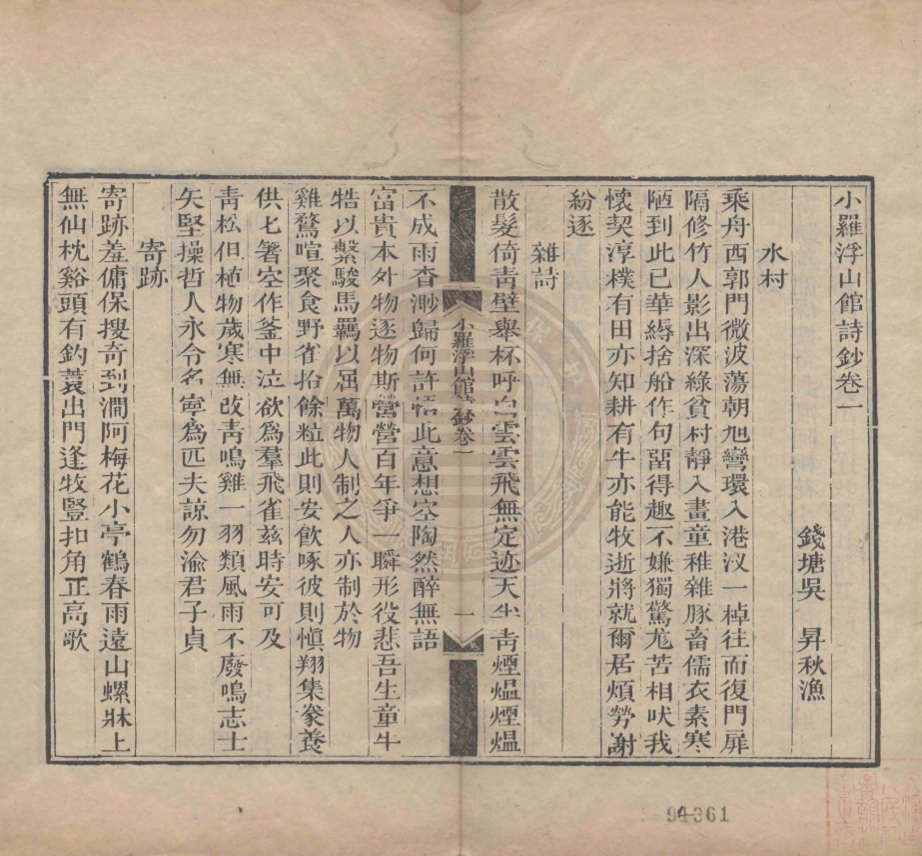 小羅浮山館詩鈔卷一
錢塘吳 昇秋漁
水村
乘舟西郭門微波蕩朝旭彎環入港汊一棹往而復門扉
隔修竹人影出深綠貧村靜入畫童稚雜豚畜儒衣素寒
陋到此已華縟捨船作句畱得趣不嫌獨驚尨苦相吠我
懷契淳樸有田亦知耕有牛亦能牧逝將就爾居煩勞謝
紛逐
雜詩
散髮倚靑壁舉杯呼白雲雲飛無定迹天尘靑煙熅煙熅
小羅浮山館詩鈔卷一
一
不成雨杳渺歸何許悟此意想空陶然醉無語
富貴本外物逐物斯營營百年爭一瞬形役悲吾生童牛
牿以繫駿馬羈以屈萬物人制之人亦制於物
雞鶩喧聚食野雀拾餘粒此則安飮啄彼則愼翔集豢養
供匕箸空作釜中泣欲爲羣飛雀茲時安可及
靑松但植物歲寒無改靑鳴雞一羽類風雨不廢鳴志士
矢堅操哲人永令名寧爲匹夫諒勿渝君子貞
寄跡
寄跡羞傭保搜奇到澗阿梅花小亭鶴春雨遠山螺牀上
無仙枕谿頭有釣蓑出門逢牧豎扣角正高歌
94361